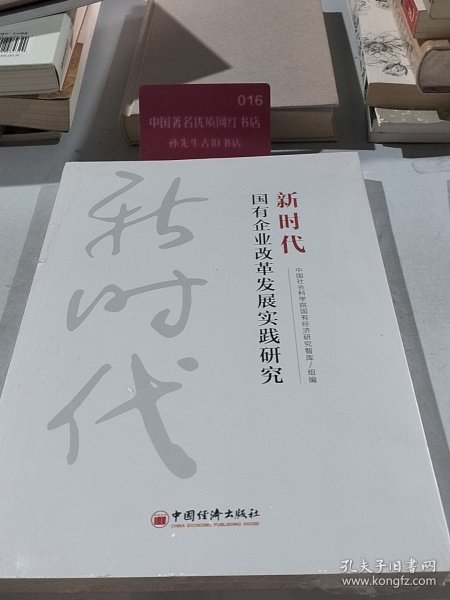 016
中国著名优质网红书店
孙先生古旧书店
新时代
新时代
国有企业改革发展实践研究
中国社会科学院国有经济研究智库/组编
中国经济出版社
CHINA ECONOMIC PUBLISHING HOUSE
孔夫子旧书网
www.kongfz.com